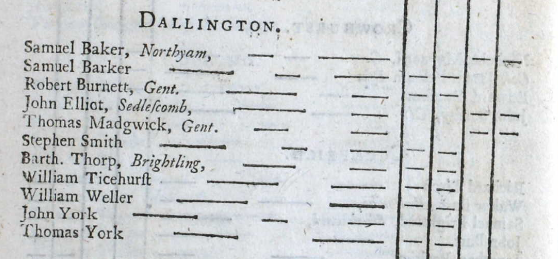 DALLINGTON.
Samuel Baker, Northyam,
Samuel Barker
Robert Burnett, Gent.
John Elliot, Sedleſcomb,
Thomas Madgwick, Gent.
Stephen Smith
Barth. Thorp, Brightling,
William Ticehurſt
William Weller
John York
Thomas York